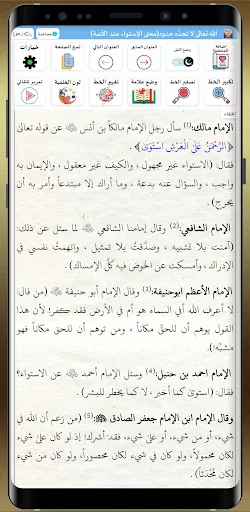 الله تعالى لا تحدّه حدود(معنى الإستواء عند الأئمة)
مساعدة
خيارات
نسخ الصفحة
العنوان التالي
العنوان السابق
وضع الليل
اضافة للمفضلة
تمرير تلقائي
لون الخلفية
نوع الخط
وضع علامة
تصغير الخط
تكبير الخط
الإمام مالك:(1) سأل رجل الإمام مالكاً بن أنس ﷺ عن قوله تعالىٰ
﴿الرَّحْمَنُ عَلَى الْعَرْشِ اسْتَوَىٰ﴾
فقال: (الاستواء غير مجهول ، والكيف غير معقول ، والإيمان به
واجب ، والسؤال عنه بدعة ، وما أراك إلا مبتدعاً وأمر به أن
يخرج)
الإمام الشافعي:(2) وقال إمامنا الشافعي لما سئل عن ذلك:
(آمنت بلا تشبيه ، وصدَّقتُ بلا تمثيل ، واتهمت نفسي في
الإدراك ، وأمسكت عن الخوض فيه كلَّ الإمساك)
الإمام الأعظم أبوحنيفة:(3) وقال الإمام أبو حنيفة (من قال:
لا أعرف الله أفي السماء هو أم في الأرض فقد كفر! لأن هذا
القول يوهم أن للحق مكاناً ، ومن توهم أن للحق مكاناً فهو
مشبّه)
الإمام احمد بن حنبل:(4) وسئل الإمام أحمد عن الاستواء؟
فقال: (استوىٰ كما أخبر ، لا كما يخطر للبشر)
وقال الإمام ابن الإمام جعفر الصادق (5): (من زعم أن الله في
شيء، أو من شيء، أو على شيء، فقد أشرك! إذ لو كان علىٰ شيء
لكان محمولاً، ولو كان في شيء لكان محصوراً، ولو كان من شيء
لكان مُحْدَثاً)